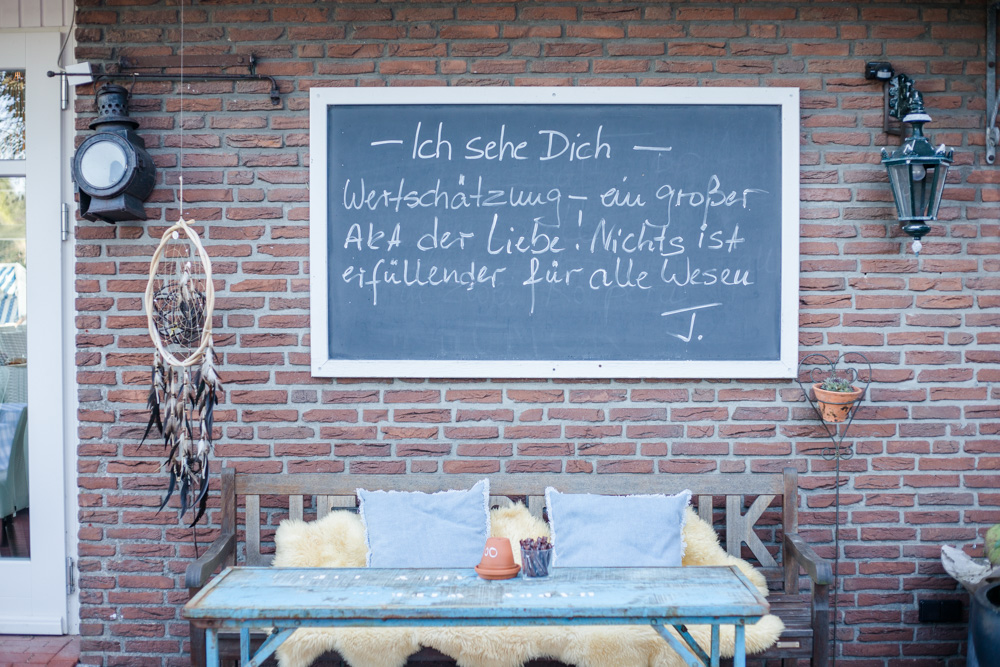 – Ich sehe Dich –
Wertschätzung – ein großer
Akt der Liebe! Nichts ist
erfüllender für alle Wesen
J.
K